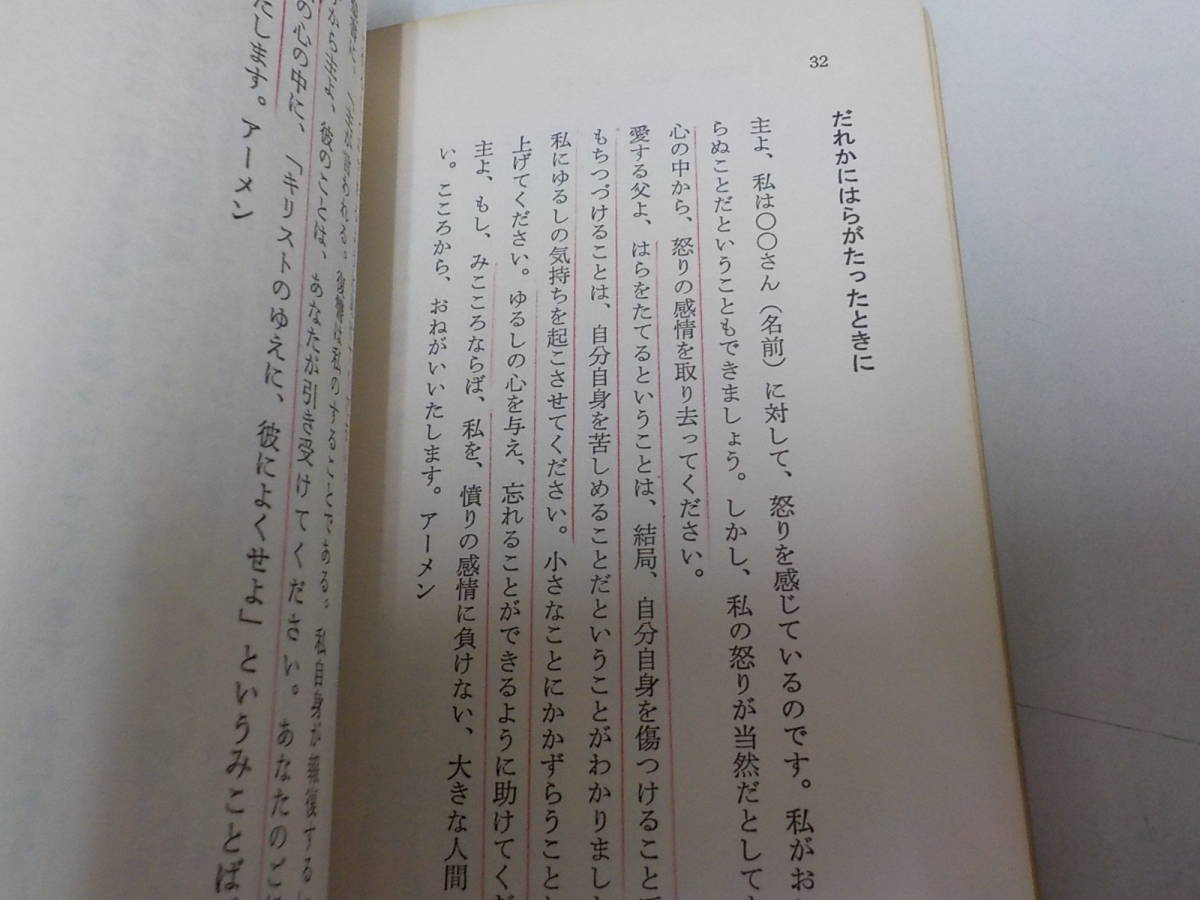 32
だれかにはらがたったときに
主よ、私は〇〇さん（名前）に対して、怒りを感じているのです。私がお
らぬことだということもできましょう。しかし、私の怒りが当然だとして
心の中から、怒りの感情を取り去ってください。
愛する父よ、はらをたてるということは、結局、自分自身を傷つけること
もちつづけることは、自分自身を苦しめることだということがわかりまし
私にゆるしの気持ちを起こさせてください。小さなことにかかずらうこと
上げてください。ゆるしの心を与え、忘れることができるように助けてくだ
主よ、もし、みこころならば、私を、憤りの感情に負けない、大きな人間
い。こころから、おねがいいたします。アーメン
言われる。復讐は私のすることである。私自身が報復する
から主よ、彼のことは、あなたが引き受けてください。あなたのご
の心の中に、「キリストのゆえに、彼によくせよ」というみことば
たします。アーメン